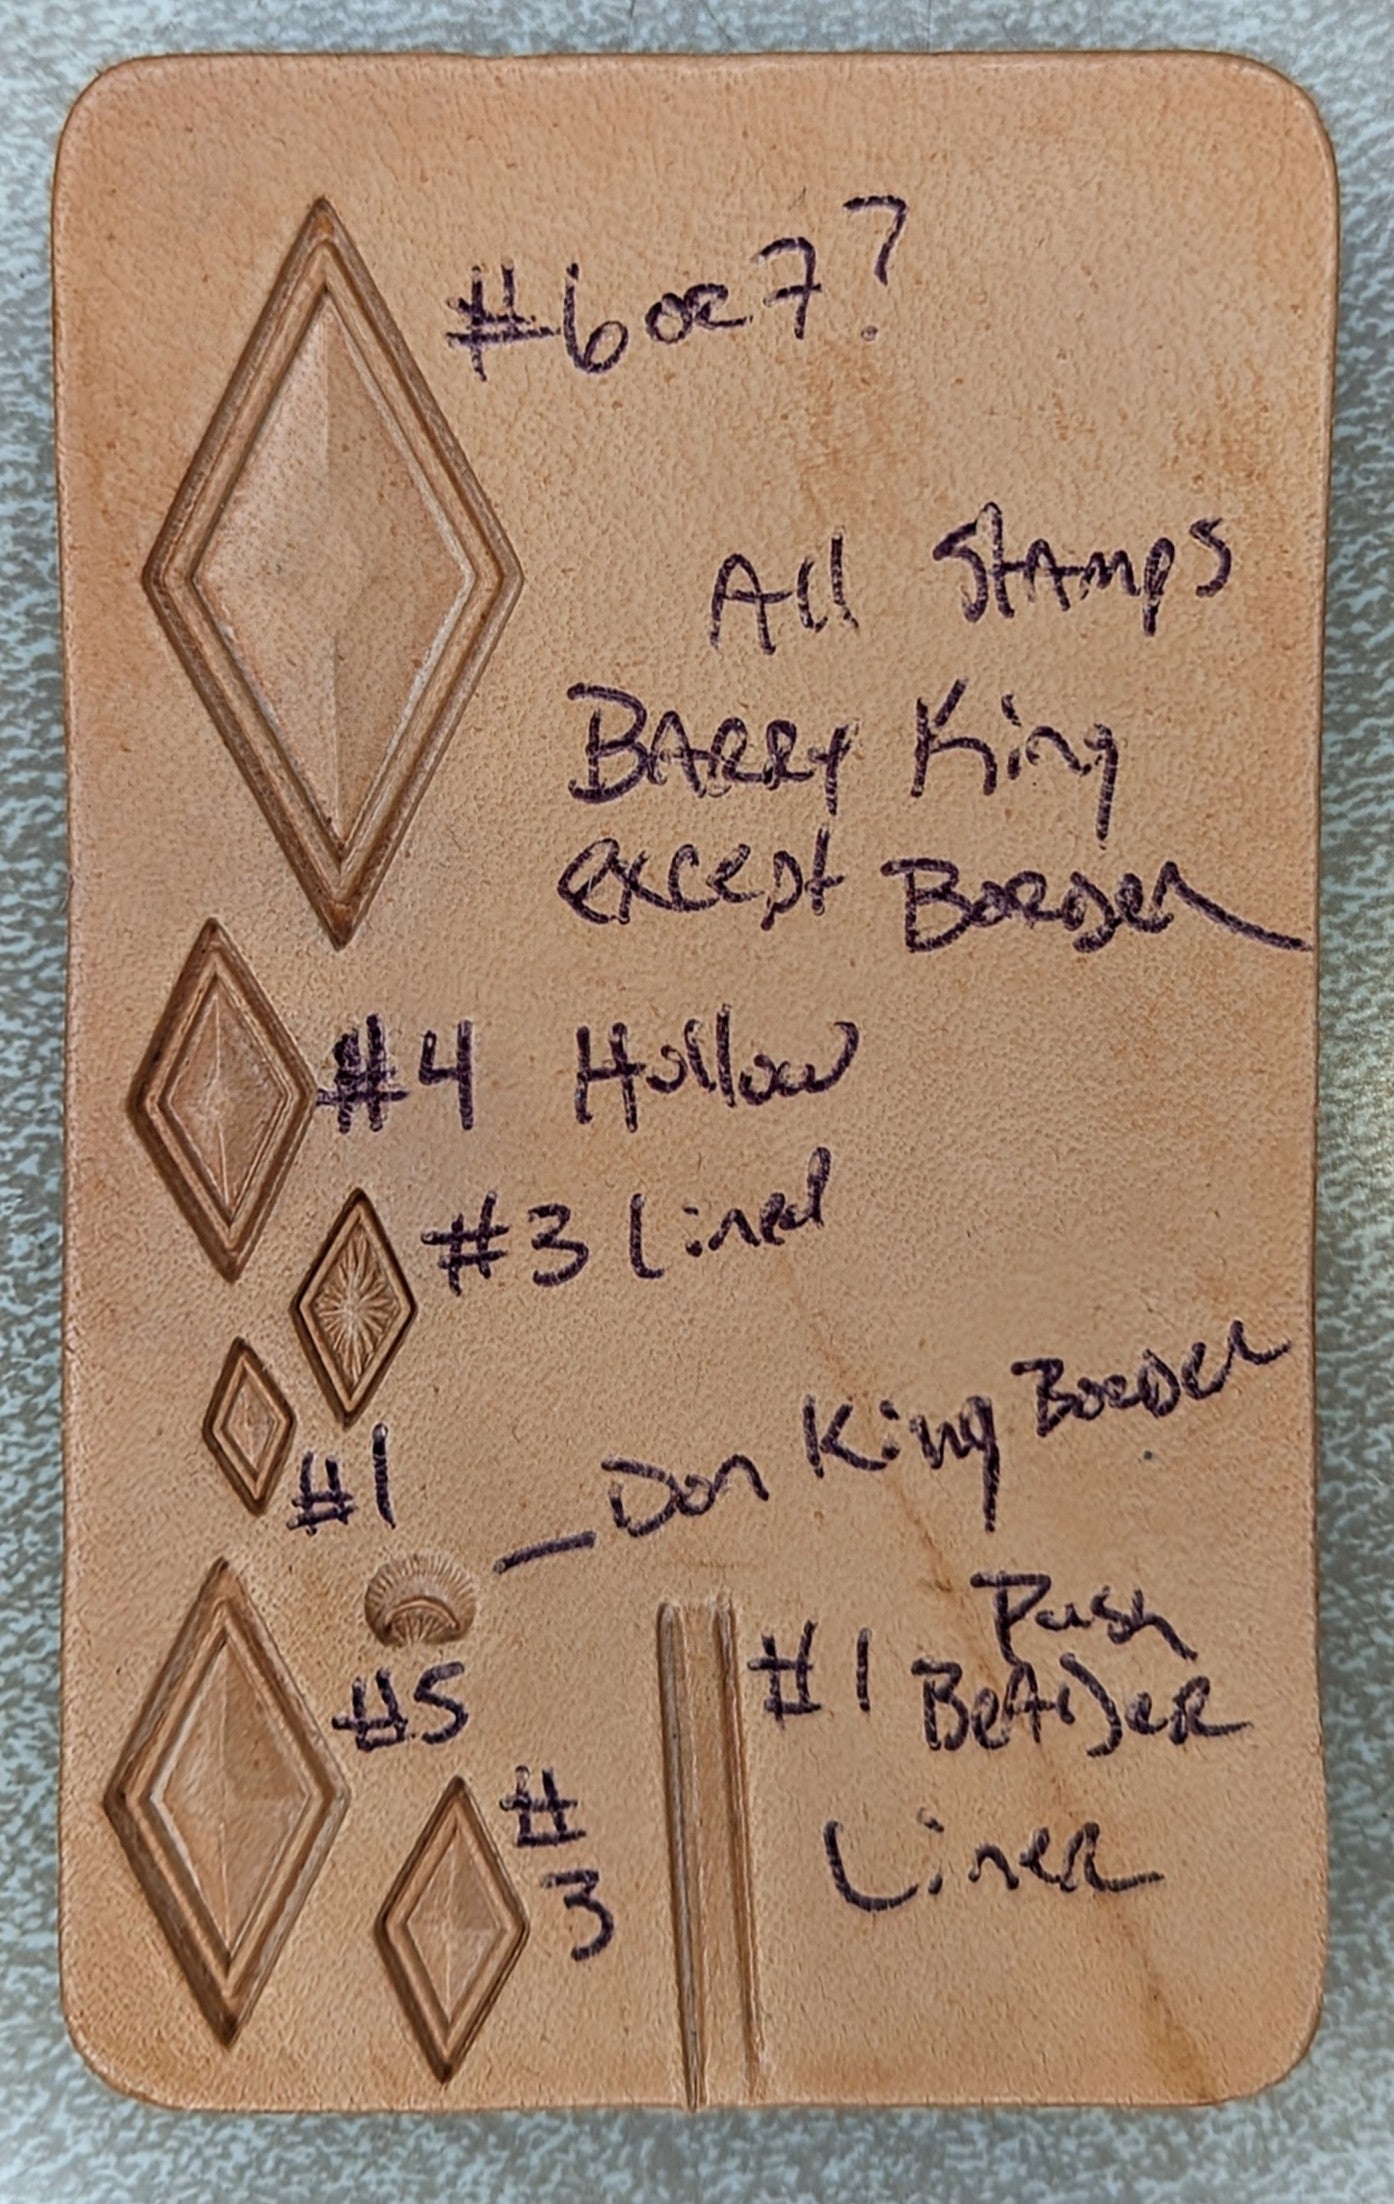 #6 or 7?
All Stamps
Barry King
except Border
#4 Hollow
#3 Lined
#1
Don King Border
#5
#1 Push
Beader
Liner
#
3